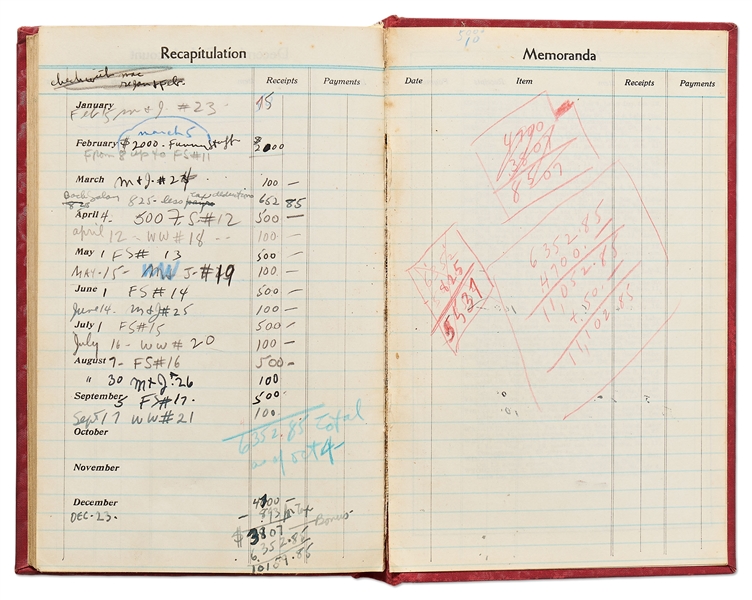 Recapitulation
Receipts Payments
January
Feb 5 M+J #23 - 15
March 5
February $2000 - Funny Stuff $2000
From 8 up to FS #11
March M+J. #24 100 —
Tax deductions
825 825 - less 652 85
April 4 - 500 F.S. #12 500 —
April 12 - WW #18 - - 100 —
May 1 FS# 13 500 —
MAY-15- WW #19 100 —
June 1 FS #14 500 —
June 14 - M+J #25 100 —
July 1 FS #15 500 —
July 16 - WW # 20 100 —
August 7 - FS #16 500 —
" 30 M+J #26 100
September 5 FS #17 - 500
Sept 17 WW #21 100
October
6352.85 total
as of Oct 4
November
December 4700 —
DEC-23- - 893 Tax
$3807 — Bonus
6352.85
10159.85
Memoranda
Date Item Receipts Payments
8
6352.85
4700.
11052.85
+ 50.
11102.85
825